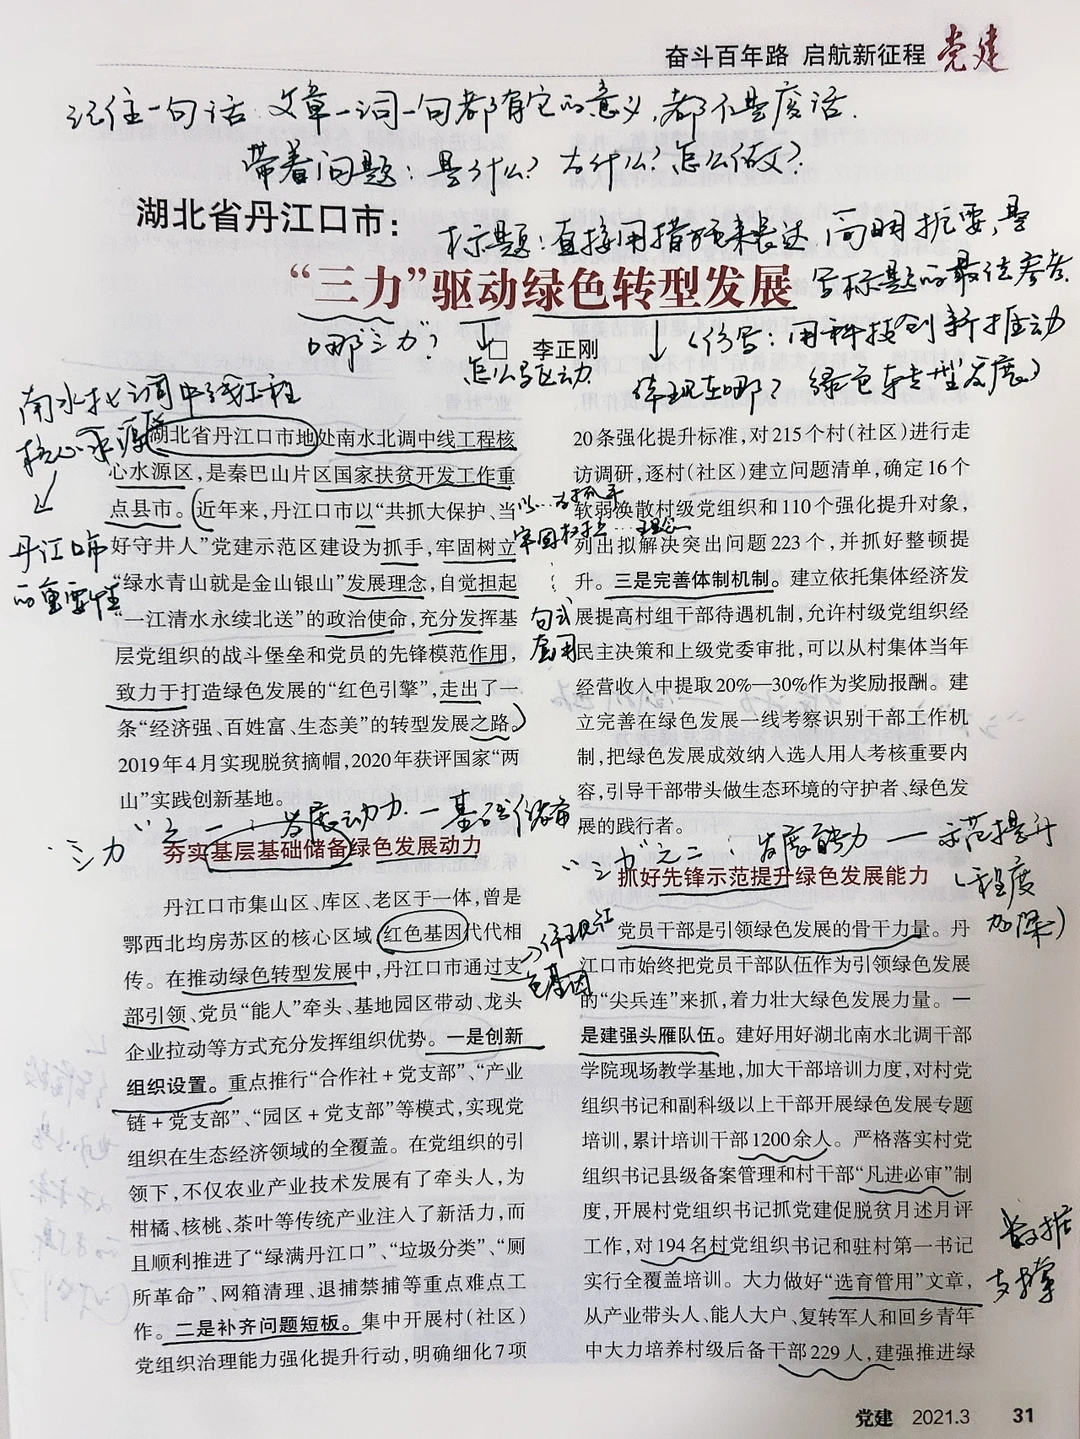 奋斗百年路 启航新征程 党建
记住一句话:文章一词一句都有它的意义,都不是废话.
带着问题:是什么?为什么?怎么做?
湖北省丹江口市:
标题:直接用措施来表达,简明扼要,是
写标题的最佳参考.
“三力”驱动绿色转型发展
(仿写:用科技创新推动
绿色转型发展)
哪“三力”?
怎么驱动
体现在哪?
□ 李正刚
南水北调中线工程
核心水源区
丹江口市
的重要性
湖北省丹江口市地处南水北调中线工程核
心水源区,是秦巴山片区国家扶贫开发工作重
点县市。近年来,丹江口市以“共抓大保护、当
好守井人”党建示范区建设为抓手,牢固树立
“绿水青山就是金山银山”发展理念,自觉担起
“一江清水永续北送”的政治使命,充分发挥基
层党组织的战斗堡垒和党员的先锋模范作用,
致力于打造绿色发展的“红色引擎”,走出了一
条“经济强、百姓富、生态美”的转型发展之路。
2019年4月实现脱贫摘帽,2020年获评国家“两
山”实践创新基地。
以…为抓手
牢固树立…理念
句式
套用
“三力”之一:发展动力—基础储备
夯实基层基础储备绿色发展动力
丹江口市集山区、库区、老区于一体,曾是
鄂西北均房苏区的核心区域,红色基因代代相
传。在推动绿色转型发展中,丹江口市通过支
部引领、党员“能人”牵头、基地园区带动、龙头
企业拉动等方式充分发挥组织优势。一是创新
组织设置。重点推行“合作社+党支部”、“产业
链+党支部”、“园区+党支部”等模式,实现党
组织在生态经济领域的全覆盖。在党组织的引
领下,不仅农业产业技术发展有了牵头人,为
柑橘、核桃、茶叶等传统产业注入了新活力,而
且顺利推进了“绿满丹江口”、“垃圾分类”、“厕
所革命”、网箱清理、退捕禁捕等重点难点工
作。二是补齐问题短板。集中开展村(社区)
党组织治理能力强化提升行动,明确细化7项
体现红
色基因
20条强化提升标准,对215个村(社区)进行走
访调研,逐村(社区)建立问题清单,确定16个
软弱涣散村级党组织和110个强化提升对象,
列出拟解决突出问题223个,并抓好整顿提
升。三是完善体制机制。建立依托集体经济发
展提高村组干部待遇机制,允许村级党组织经
民主决策和上级党委审批,可以从村集体当年
经营收入中提取20%—30%作为奖励报酬。建
立完善在绿色发展一线考察识别干部工作机
制,把绿色发展成效纳入选人用人考核重要内
容,引导干部带头做生态环境的守护者、绿色发
展的践行者。
“三力”之二:发展能力—示范提升
(程度
加深)
抓好先锋示范提升绿色发展能力
党员干部是引领绿色发展的骨干力量。丹
江口市始终把党员干部队伍作为引领绿色发展
的“尖兵连”来抓,着力壮大绿色发展力量。一
是建强头雁队伍。建好用好湖北南水北调干部
学院现场教学基地,加大干部培训力度,对村党
组织书记和副科级以上干部开展绿色发展专题
培训,累计培训干部1200余人。严格落实村党
组织书记县级备案管理和村干部“凡进必审”制
度,开展村党组织书记抓党建促脱贫月述月评
工作,对194名村党组织书记和驻村第一书记
实行全覆盖培训。大力做好“选育管用”文章,
从产业带头人、能人大户、复转军人和回乡青年
中大力培养村级后备干部229人,建强推进绿
数据
支撑
党建 2021.3 31